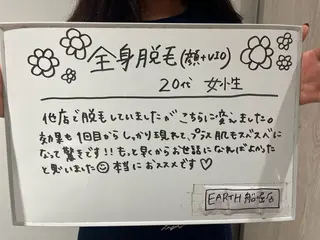 全身脱毛(顔+VIO)
20代 女性
他店で脱毛していましたがこちらに変えました。
効果も1回目からしっかり現れて、プラス肌もスベスベに
なって驚きです!!もっと早くからお世話になればよかった
と思いました😊本当におススメです♡
EARTH 船堀店